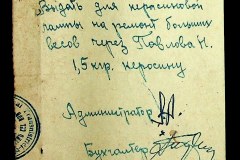 Выдать для керосиновой
лампы на ремонт больших
весов через Павлова Н.
1,5 кгр. керосину
Администратор
Бухгалтер